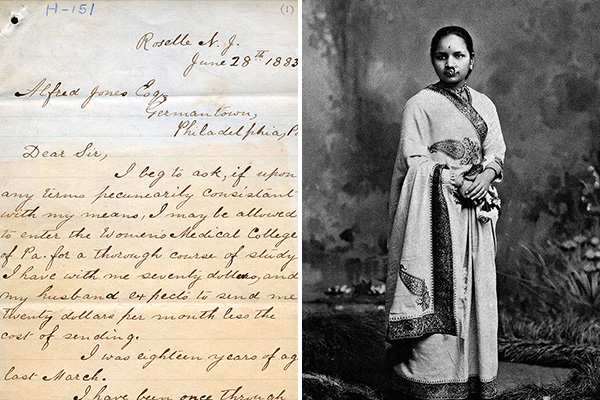 H-151
(1)
Roselle N. J.
June 28th 1883
Alfred Jones Esq.
Germantown,
Philadelphia, Pa
Dear Sir,
I beg to ask, if upon
any terms pecuniarily consistant
with my means, I may be allowed
to enter the Women's Medical College
of Pa. for a thorough course of study
I have with me seventy dollars, and
my husband expects to send me
twenty dollars per month less the
cost of sending.
I was eighteen years of ag
last March.
I have been once through